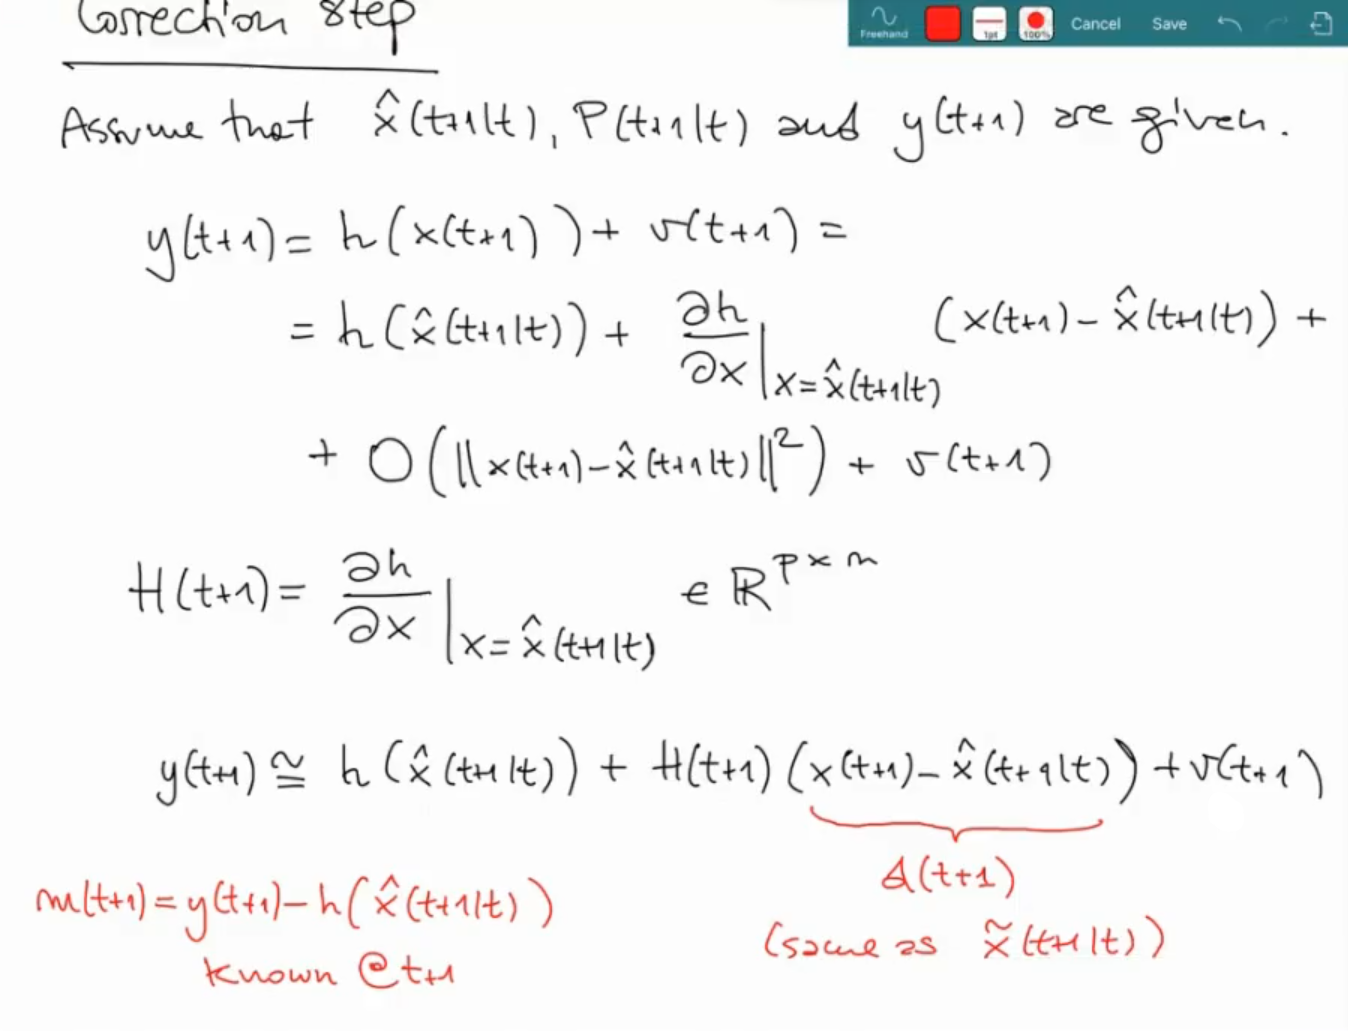 Correction Step
Freehand 1pt 100% Cancel Save
Assume that x̂(t+1|t), P(t+1|t) and y(t+1) are given.
y(t+1) = h(x(t+1)) + v(t+1) =
= h(x̂(t+1|t)) + ∂h/∂x |x=x̂(t+1|t) (x(t+1) - x̂(t+1|t)) +
+ O(||x(t+1) - x̂(t+1|t)||²) + v(t+1)
H(t+1) = ∂h/∂x |x=x̂(t+1|t) ∈ ℝ^{p×n}
y(t+1) ≅ h(x̂(t+1|t)) + H(t+1)(x(t+1) - x̂(t+1|t)) + v(t+1)
Δ(t+1)
m(t+1) = y(t+1) - h(x̂(t+1|t))
(same as x̃(t+1|t))
known @t+1